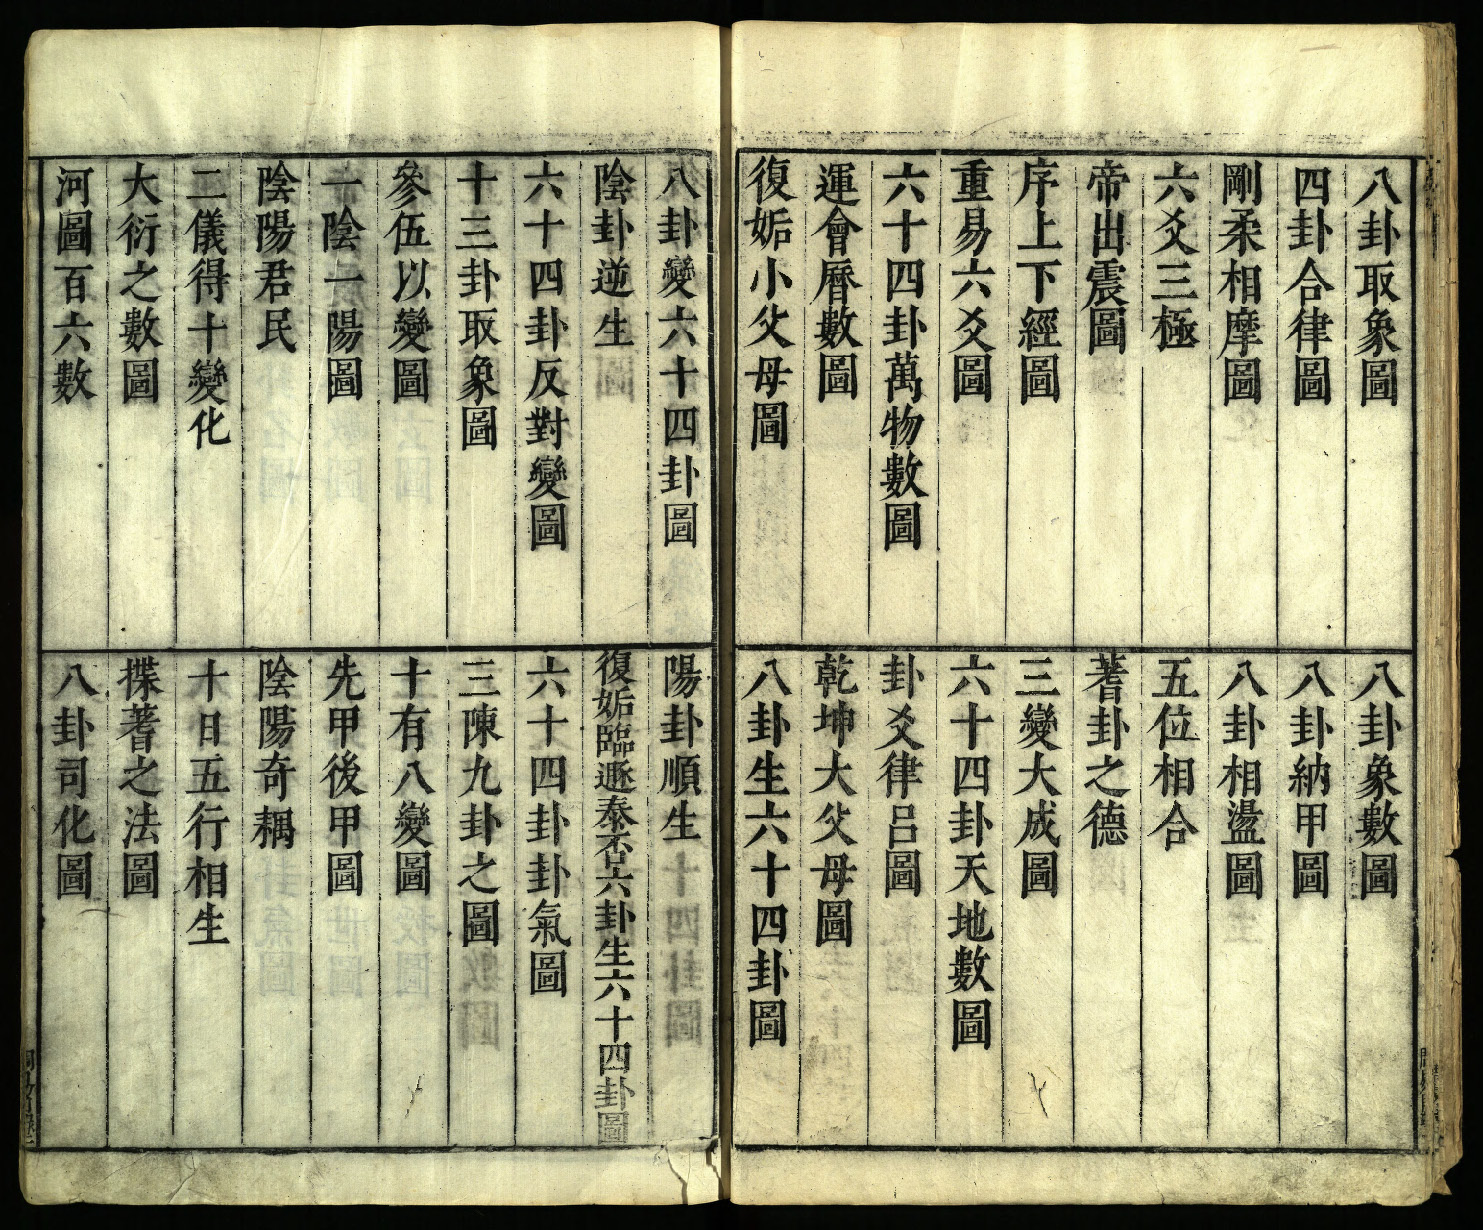 八卦取象圖
八卦象數圖
四卦合律圖
八卦納甲圖
剛柔相摩圖
八卦相盪圖
六爻三極
五位相合
帝出震圖
蓍卦之德
序上下經圖
三變大成圖
重易六爻圖
六十四卦天地數圖
六十四卦萬物數圖
卦爻律呂圖
運會曆數圖
乾坤大父母圖
復姤小父母圖
八卦生六十四卦圖
八卦變六十四卦圖
陽卦順生
陰卦逆生
復姤臨遯泰否六卦生六十四卦圖
六十四卦反對變圖
六十四卦卦氣圖
十三卦取象圖
三陳九卦之圖
參伍以變圖
十有八變圖
一陰一陽圖
先甲後甲圖
陰陽君民
陰陽奇耦
二儀得十變化
十日五行相生
大衍之數圖
揲蓍之法圖
河圖百六數
八卦司化圖